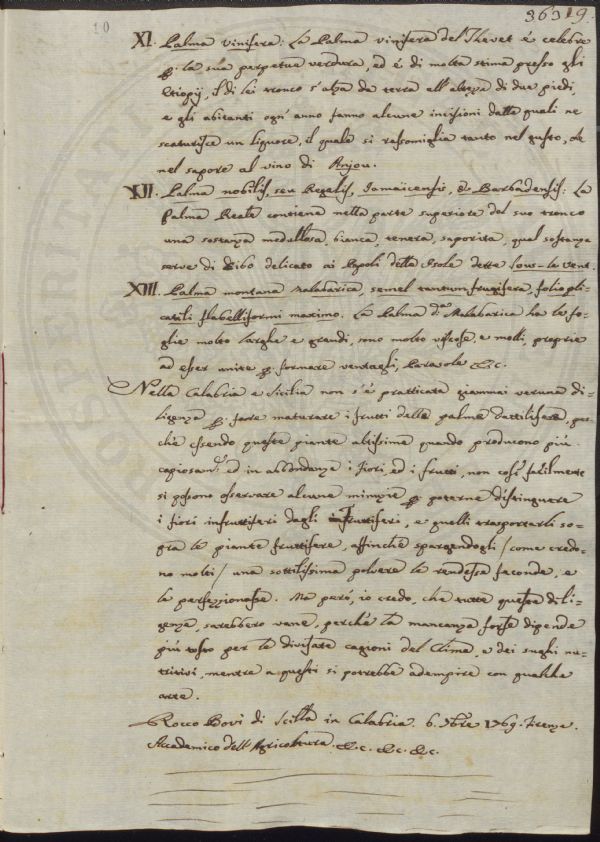 10
363 19.
XI. Palma vinifera: La Palma vinifera del Thevet é celebre
p. la sua perpetua verdura, ed é di molta stima presso gli
Etiopij, il di lei tronco s'alza da terra all'altezza di due piedi,
e gli abitanti ogn'anno fanno alcune incisioni dalle quali ne
scaturisce un liquore, il quale si rassomiglia tanto nel gusto, che
nel sapore al vino di Anjou.
XII. Palma nobilis, seu Regalis, Jamaicensis, & Barbadensis: La
Palma Reale contiene nella parte superiore del suo tronco
una sostanza medullosa, bianca, tenera, saporita, qual sostanza
serve di Cibo delicato ai Popoli delle Isole dette sous-le vent.
XIII. Palma montana Malabarica, semel tantum frugifera, folio pli-
catili flabelliformi maximo. La Palma d.a Malabarica ha le fo-
glie molto larghe e grandi, sono molto viscose, e molli, proprie
ad esser unite p. formare ventagli, Parasole &c.
Nella Calabria e Sicilia non s'é pratticata giammai veruna di-
ligenza p. fare maturare i frutti delle palme dattilifere, per-
ché essendo queste piante altissime quando producono piú
copiosam.e ed in abbondanza i fiori, ed i frutti, non cosí facilmente
si possono osservare alcune minuzie p. poterne distinguere
i fiori infruttiferi dagli fruttiferi, e quelli trasportarli so-
pra le piante fruttifere, affinché spargendogli / come credo-
no molti / una sottilissima polvere le rendesse feconde, e
le perfezzionasse. Ma peró, io credo, che tutte queste dili-
genze, sarebbero vane, perché la mancanza forse dipende
piú tosto per le divisate cagioni del Clima, e dei sughi nu-
tritivi, mentre a questi si potrebbe adempire con qualche
arte.
Rocco Bovi di Scilla in Calabria. 6. 9bre 1769. Firenze.
Accademico dell'Agricoltura. &c. &c. &c.